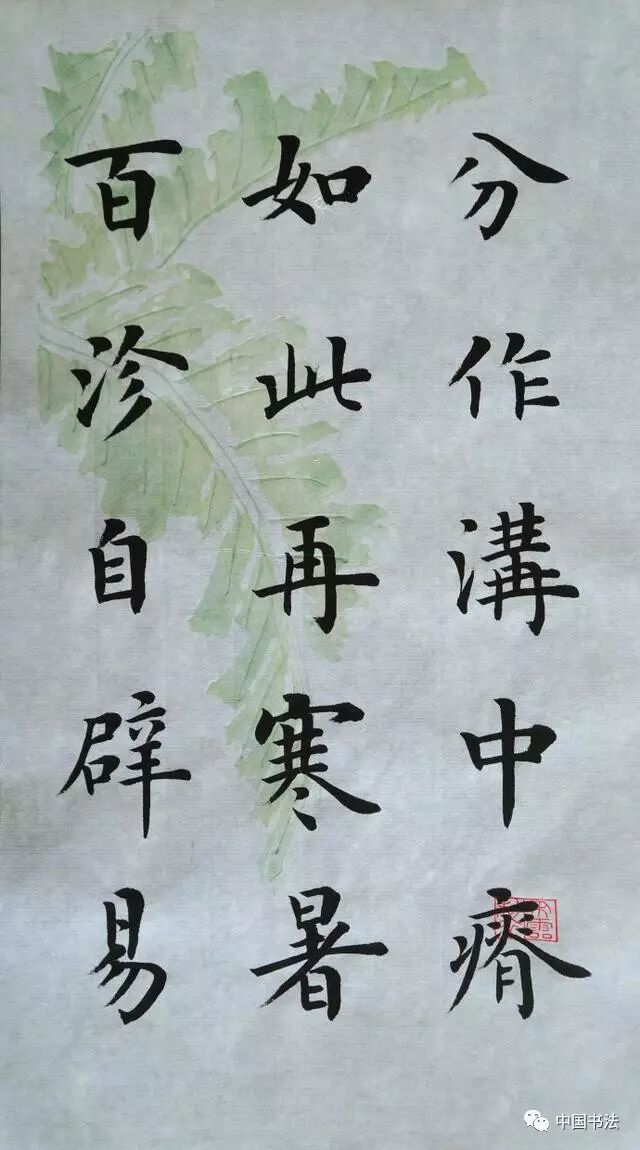 分作溝中瘠
如此再寒暑
百沴自辟易
中国书法